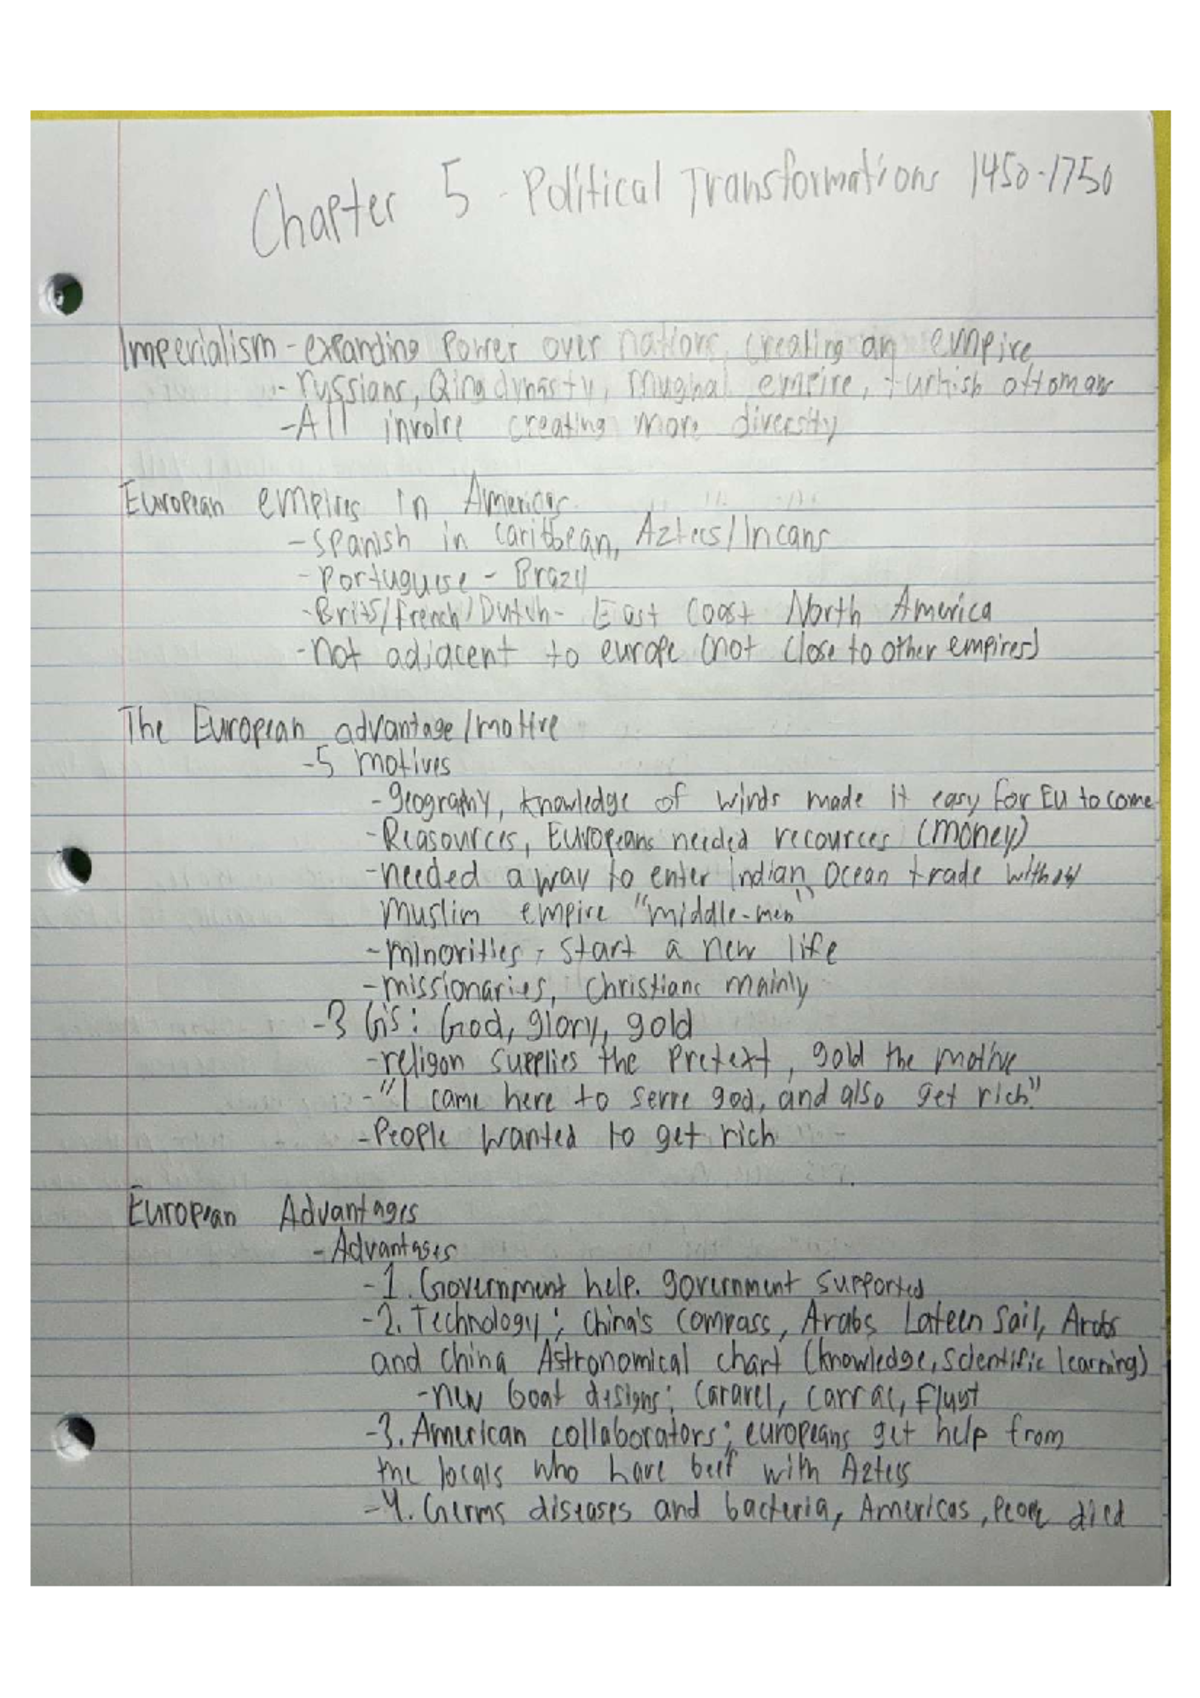 Chapter 5 - Political Transformations 1450-1750
Imperialism - expanding power over nations, creating an empire
- russians, Qing dynasty, Mughal empire, turkish ottomans
- All involve creating more diversity
European empires in Americas
- Spanish in Caribbean, Aztecs/Incans
- Portuguese - Brazil
- Brits/French/Dutch - East Coast North America
- not adjacent to europe (not close to other empires)
The European advantage/motive
- 5 motives
- geography, knowledge of winds made it easy for EU to come
- Reasources, Europeans needed recources (money)
- needed a way to enter Indian Ocean trade without
Muslim empire "middle-men"
- minorities, start a new life
- missionaries, Christians mainly
- 3 G's: God, glory, gold
- religon supplies the pretext, gold the motive
- "I came here to serve god, and also get rich"
- People wanted to get rich
European Advantages
- Advantages
- 1. Government help. government supported
- 2. Technology; China's compass, Arabs Lateen Sail, Arabs
and China Astronomical chart (knowledge, scientific learning)
- new boat designs: caravel, carrac, fluyt
- 3. American collaborators; europeans get help from
the locals who have beef with Aztecs
- 4. Germs diseases and bacteria, Americas, people died